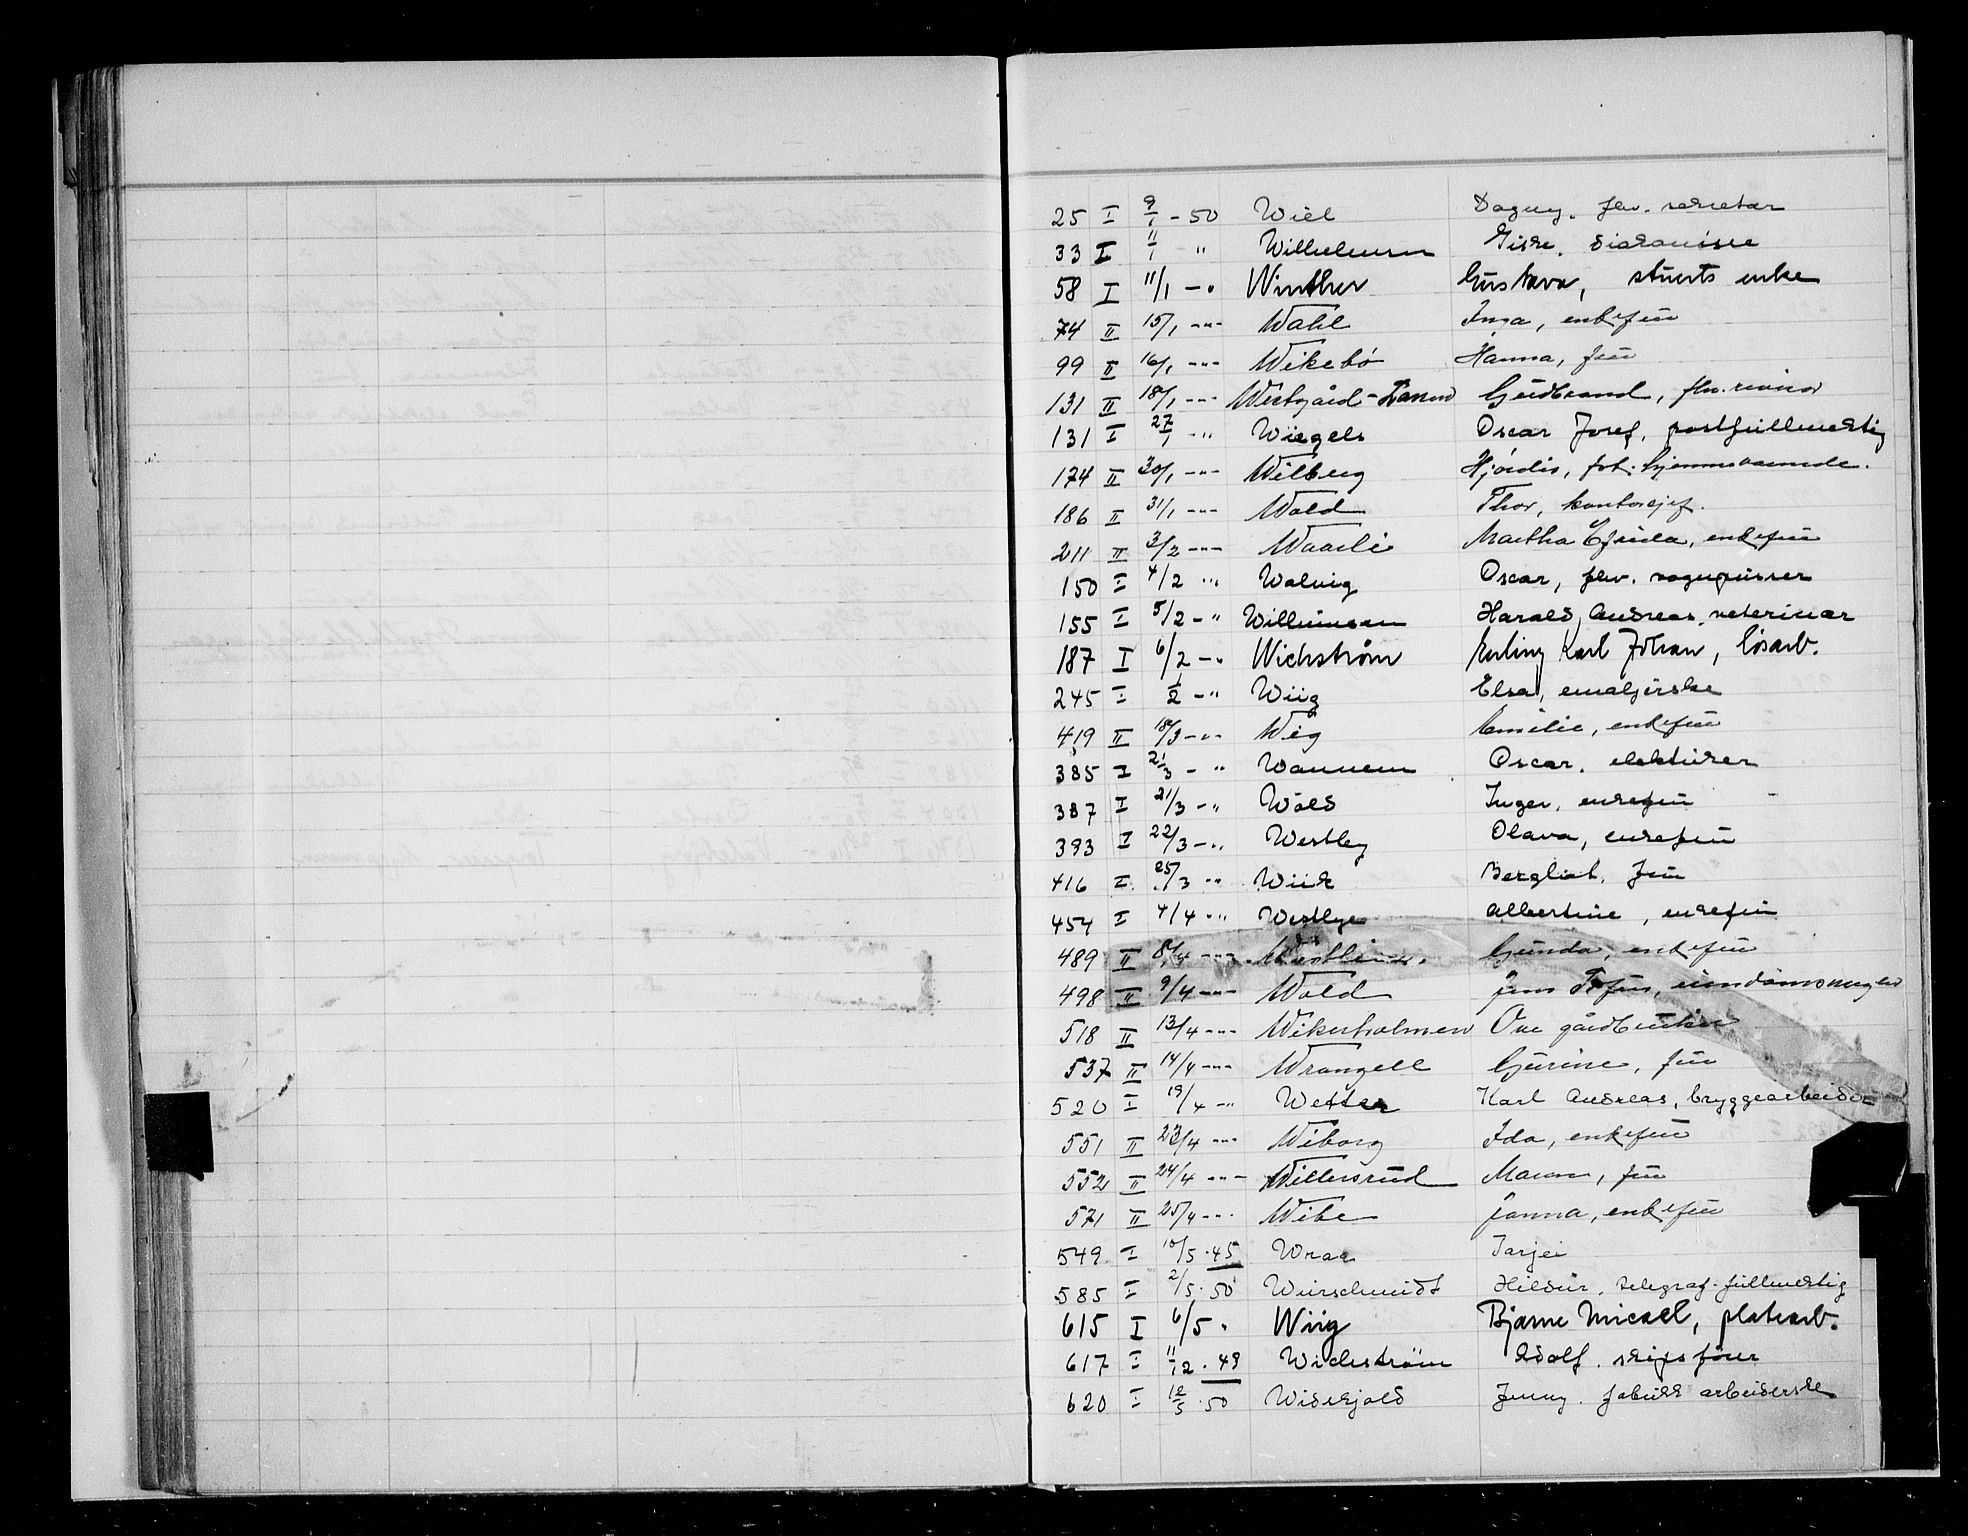 25 I 9/1 - 50 Wiel Dagny, fhv. sekretær
33 I 11/1 " Wilhelmsen Giske, diakonisse
58 I 11/1 - " Winther Gustava, stuerts enke
74 II 15/1 -"- Wahl Inga, enkefru
99 II 16/1 -"- Wikebø Hanna, fru
131 II 18/1 -"- Westgård- Gudbrand, fhv. revisor
131 I 27/1 - " Wiegels Oscar Josef, postfullmektig
174 II 30/1 -"- Wilberg Hjørdis, fr. hjemmeværende.
186 II 31/1 -"- Wold Thor, kontorsjef.
211 II 3/2 -"- Waarli Martha Elfrida, enkefru
150 I 4/2 " Walvig Oscar, fhv. vognpusser
155 I 5/2 - " Willumsen Harald Andreas, veterinær
187 I 6/2 - " Wichstrøm Erling Karl Johan, løsarb.
245 I 1/2 - " Wiig Elsa, emaljørske
419 II 18/3 -"- Wig Emilie, enkefru
385 I 21/3 - " Wannem Oscar, elektriker
387 I 21/3 - " Wold Inger, enkefru
393 I 22/3 - " Westby Olava, enkefru
416 I 25/3 " Wiik Bergliot, fru
454 I 4/4 - " Westlye Albertine, enkefru
489 II 8/4 -"- Gunda, enkefru
498 II 9/4 -"- Wold Jens, eiendomsmegler
518 II 13/4 -"- Wikerholmen Ove gårdbruker
537 II 14/4 -"- Wrangell Gurine, fru
520 I 19/4 - " Wetter Karl Andreas, bryggearbeider
551 II 23/4 -"- Wiborg Ida, enkefru
552 II 24/4 -"- Willersrud Maren, fru
571 II 25/4 -"- Wibe Janna, enkefru
549 I 10/5 . 45 Wraa Tarjei
585 I 2/5 . 50 Wurschmidt Hildur, telegraf-fullmektig
615 I 6/5 " Wiig Bjarne Micael, platearb.
617 I 11/12 . 49 Wichstrøm Adolf, skipsfører
620 I 12/5 . 50 Widskjold Jenny, fabrikkarbeiderske